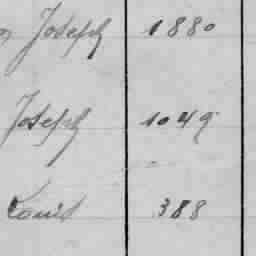 Joseph 1880
Joseph 1049
Louis 388